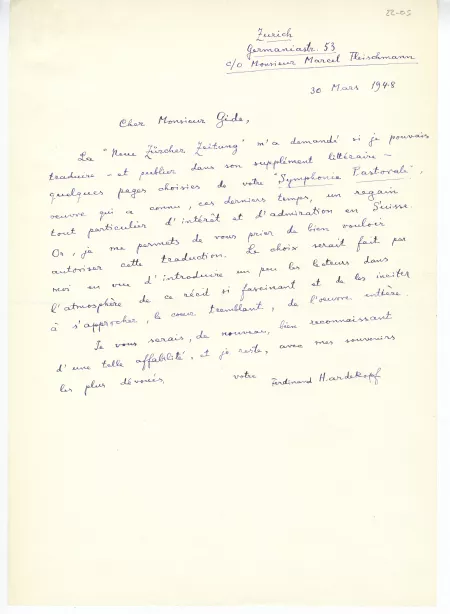 22-05
Zurich
Germaniastr. 53
c/o Monsieur Marcel Fleischmann
30 Mars 1948
Cher Monsieur Gide,
La "Neue Zürcher Zeitung" m'a demandé si je pouvais
traduire – et publier dans son supplément littéraire –
quelques pages choisies de votre "Symphonie Pastorale",
œuvre qui a connu, ces derniers temps, un regain
tout particulier d'intérêt et d'admiration en Suisse.
Or, je me permets de vous prier de bien vouloir
autoriser cette traduction. Le choix serait fait par
moi en vue d'introduire un peu les lecteurs dans
l'atmosphère de ce récit si fascinant et de les inciter
à s'approcher, le cœur tremblant, de l'œuvre entière.
Je vous serais, de nouveau, bien reconnaissant
d'une telle affabilité, et je reste, avec mes souvenirs
les plus dévoués,
votre Ferdinand Hardekopf